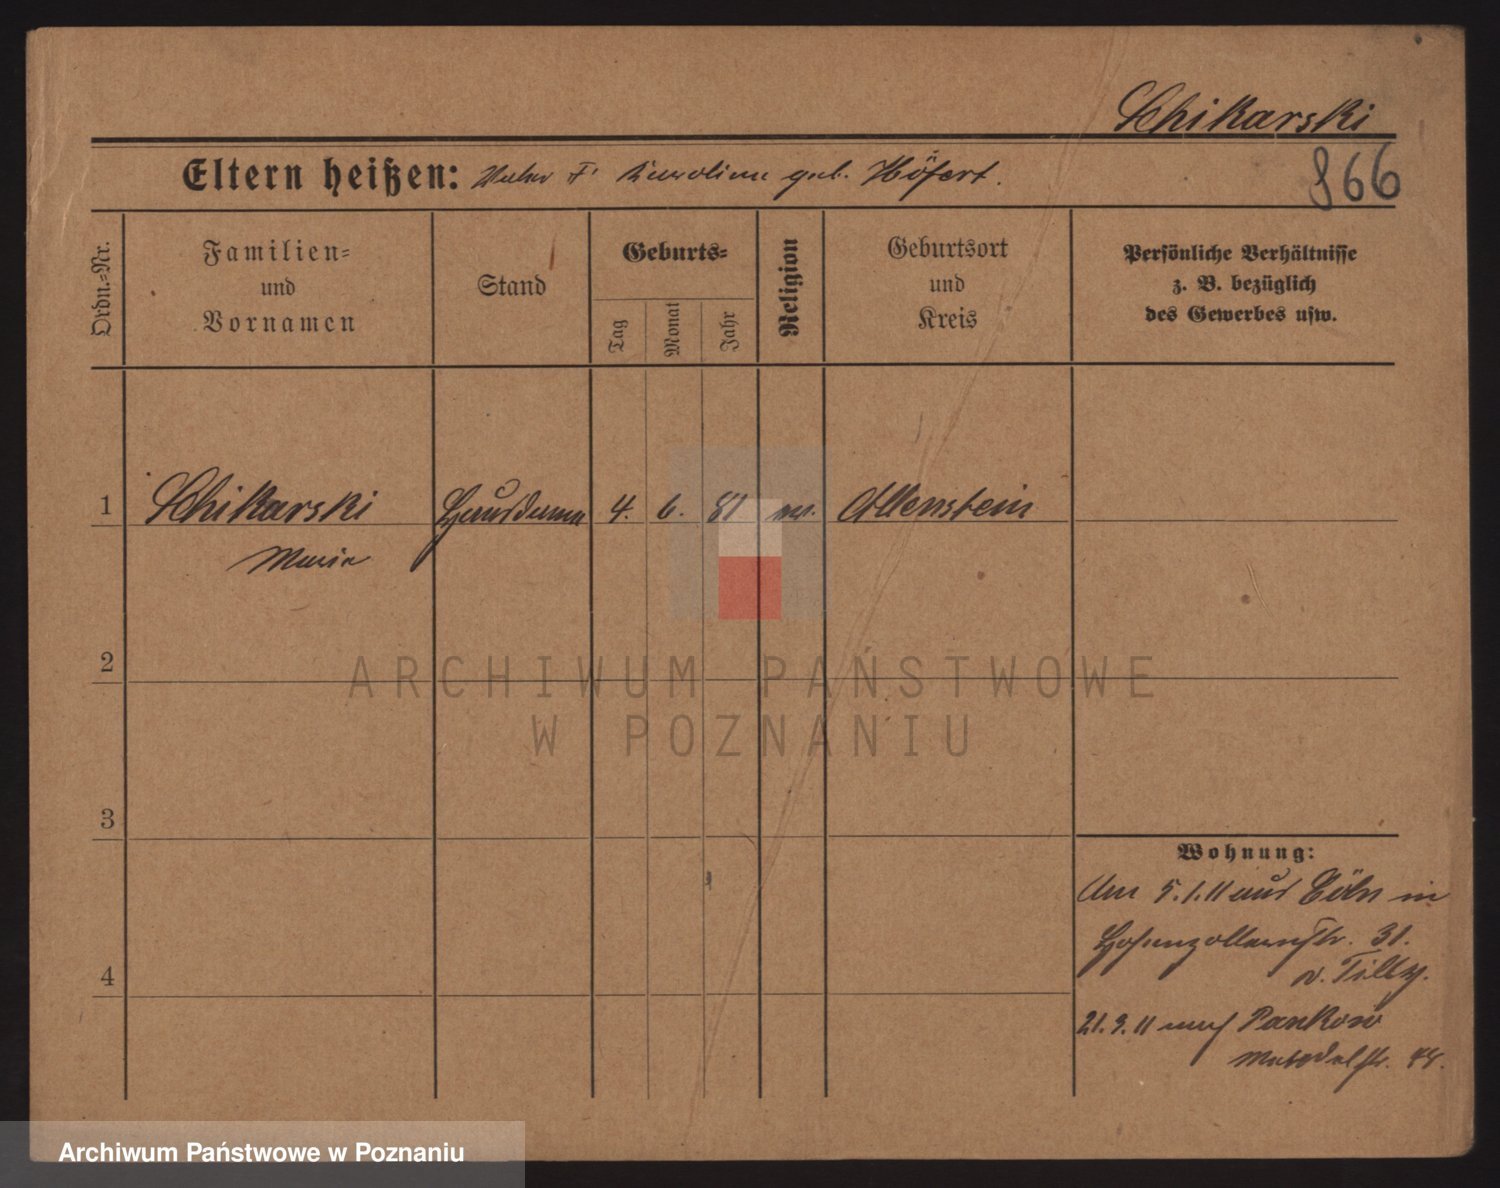 Schikarski
Eltern heißen: Vater † Karoline geb. Höfert.
866
Ordn.=Nr.
Familien=
und
Vornamen
Stand
Geburts=
Tag
Monat
Jahr
Religion
Geburtsort
und
Kreis
Persönliche Verhältnisse
z. B. bezüglich
des Gewerbes usw.
1 Schikarski Hausdame 4. 6. 81 Allenstein
Maria
2
ARCHIWUM PAŃSTWOWE
W POZNANIU
3
Wohnung:
Am 5.1.11 aus Cöln in
Hohenzollernstr. 31.
4
21.3.11 nach Pankow
Archiwum Państwowe w Poznaniu